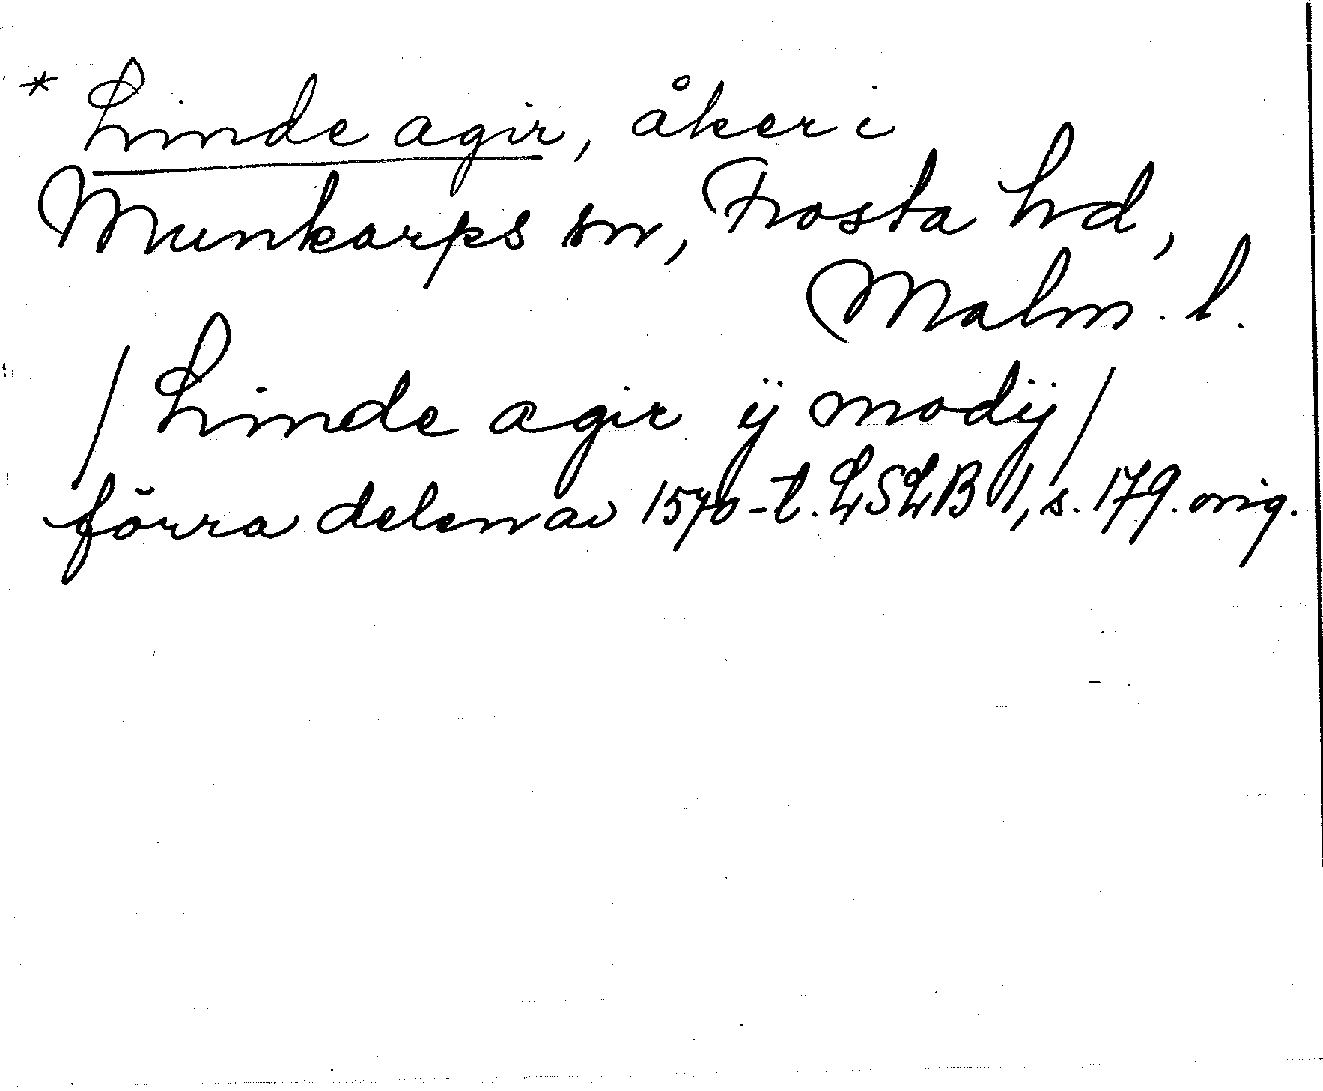 * Linde agir, åker i
Munkarps sn, Frosta hd,
Malm. l.
/ Linde agir ÿ modÿ /
förra delen av 1570-t. LSLB 1, s. 179. orig.